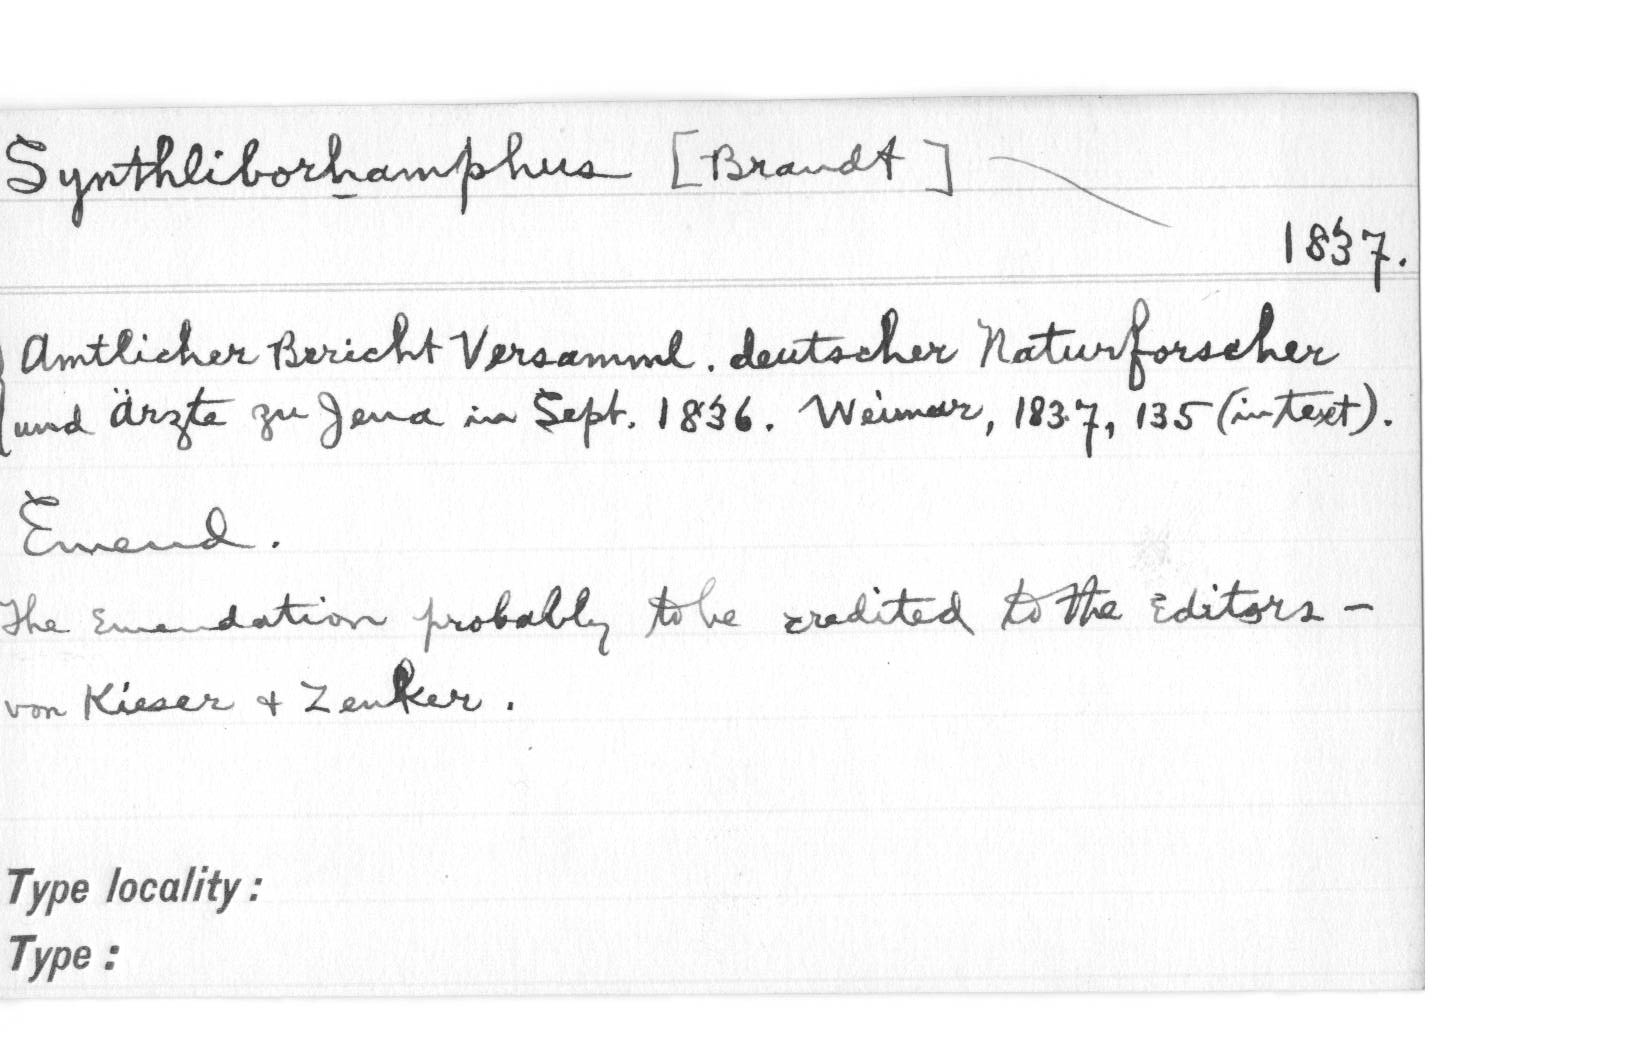 Synthliborhamphus [Brandt]
1837.
Amtlicher Bericht Versamml. deutscher Naturforscher
und ärzte zu Jena in Sept. 1836. Weimar, 1837, 135 (in text).
Emend.
The Emendation probably to be credited to the Editors –
von Kieser & Zenker.
Type locality:
Type: